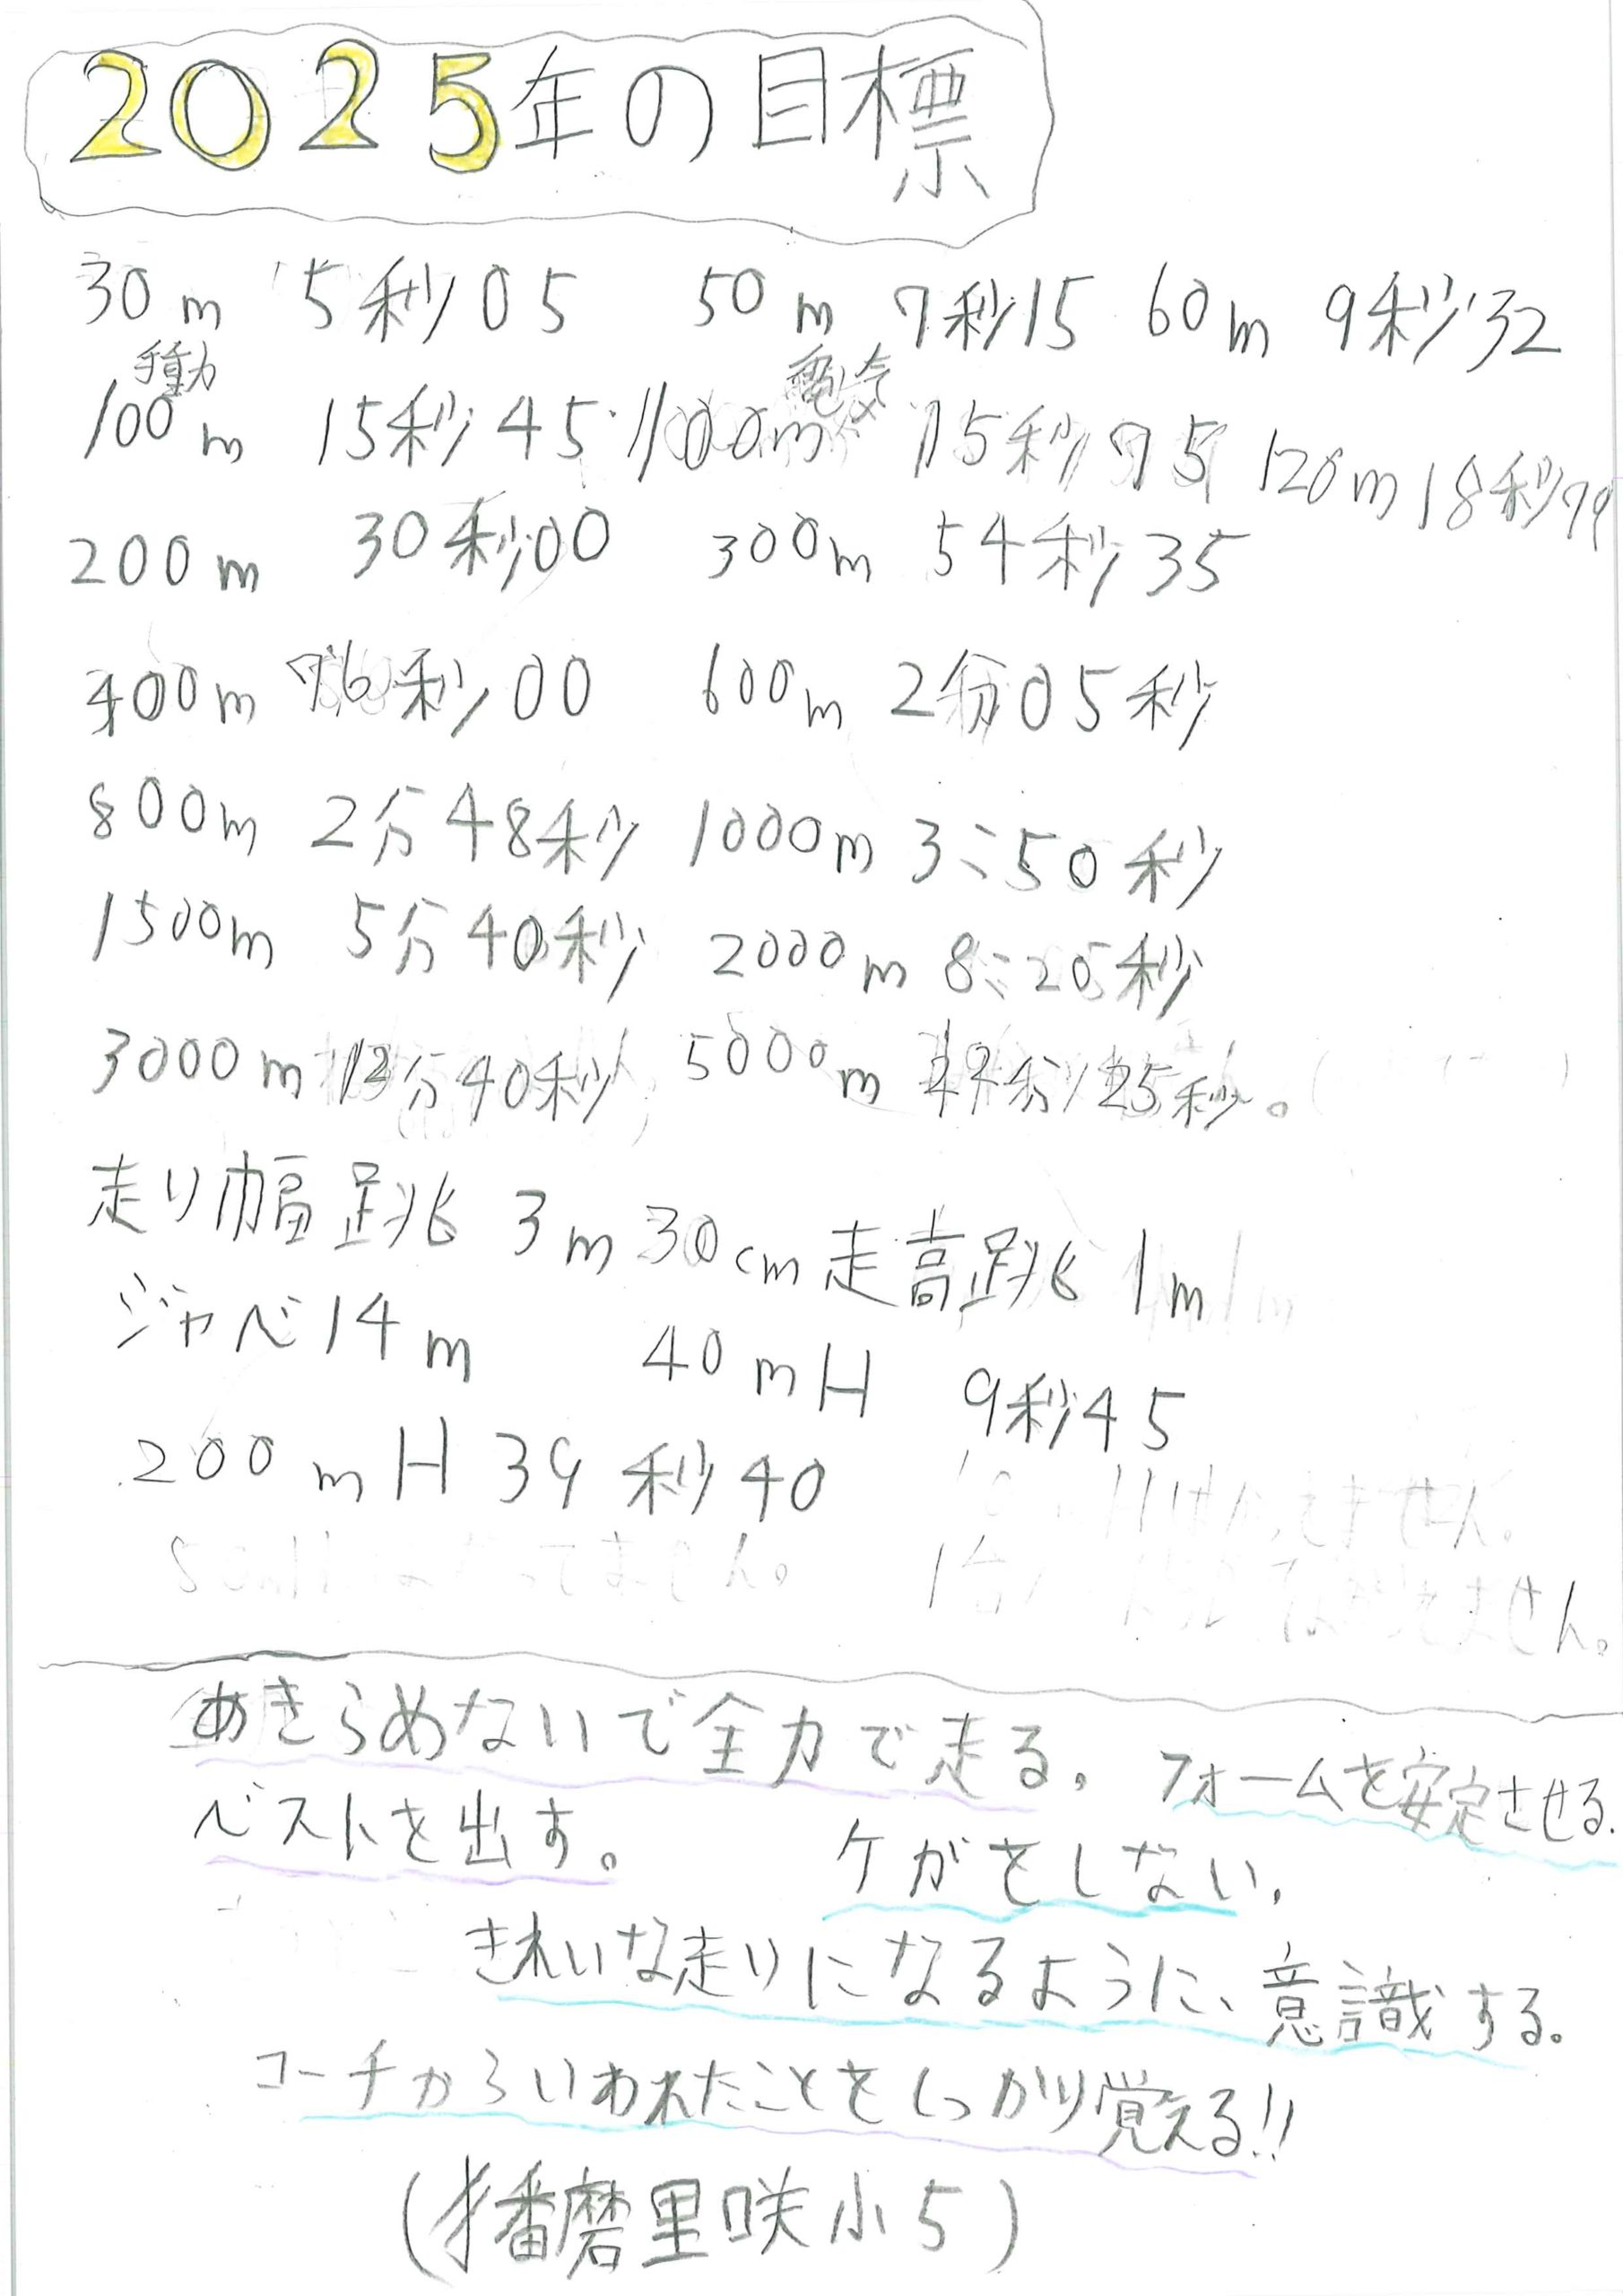 2025年の目標
30m 5秒05 50m 7秒15 60m 9秒32
手動 電気
100m 15秒45 100m 15秒75 120m 18秒79
200m 30秒00 300m 54秒35
400m 76秒00 600m 2分05秒
800m 2分48秒 1000m 3:50秒
1500m 5分40秒 2000m 8:25秒
3000m 12分40秒 5000m 分25秒。
走り幅跳 3m30cm 走高跳 1m
ジャベ14m 40mH 9秒45
200mH 39秒40
あきらめないで全力で走る。 フォームを安定させる.
ベストを出す。 ケガをしない。
きれいな走りになるように、意識する。
コーチからいわれたことをしっかり覚える!!
(播磨里咲小5)